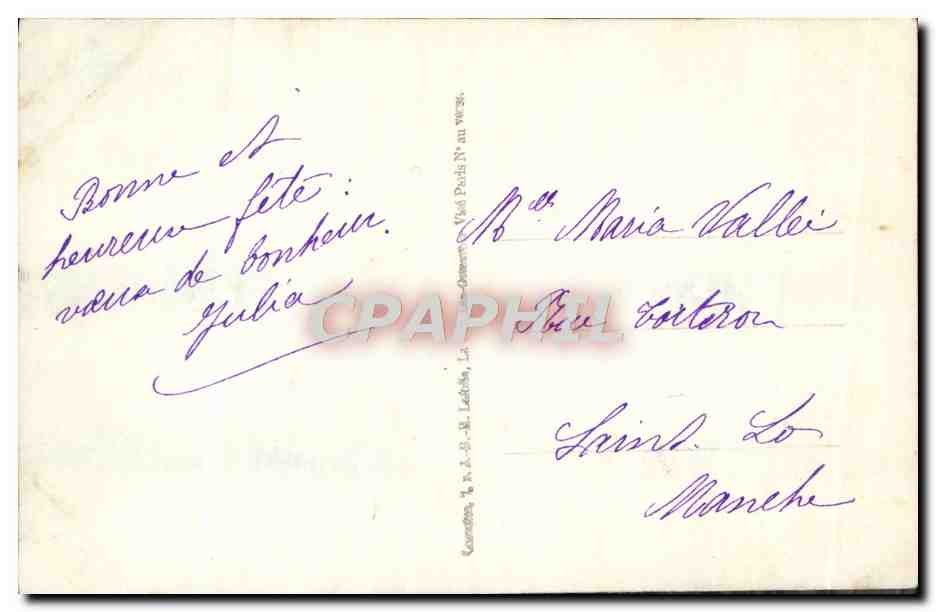 Bonne et
heureuse fête :
vœux de bonheur.
Julia
Melle Maria Vallée
Rue Torteron
Saint. Lo
Manche
CPARHIL
Paris N° au verso.